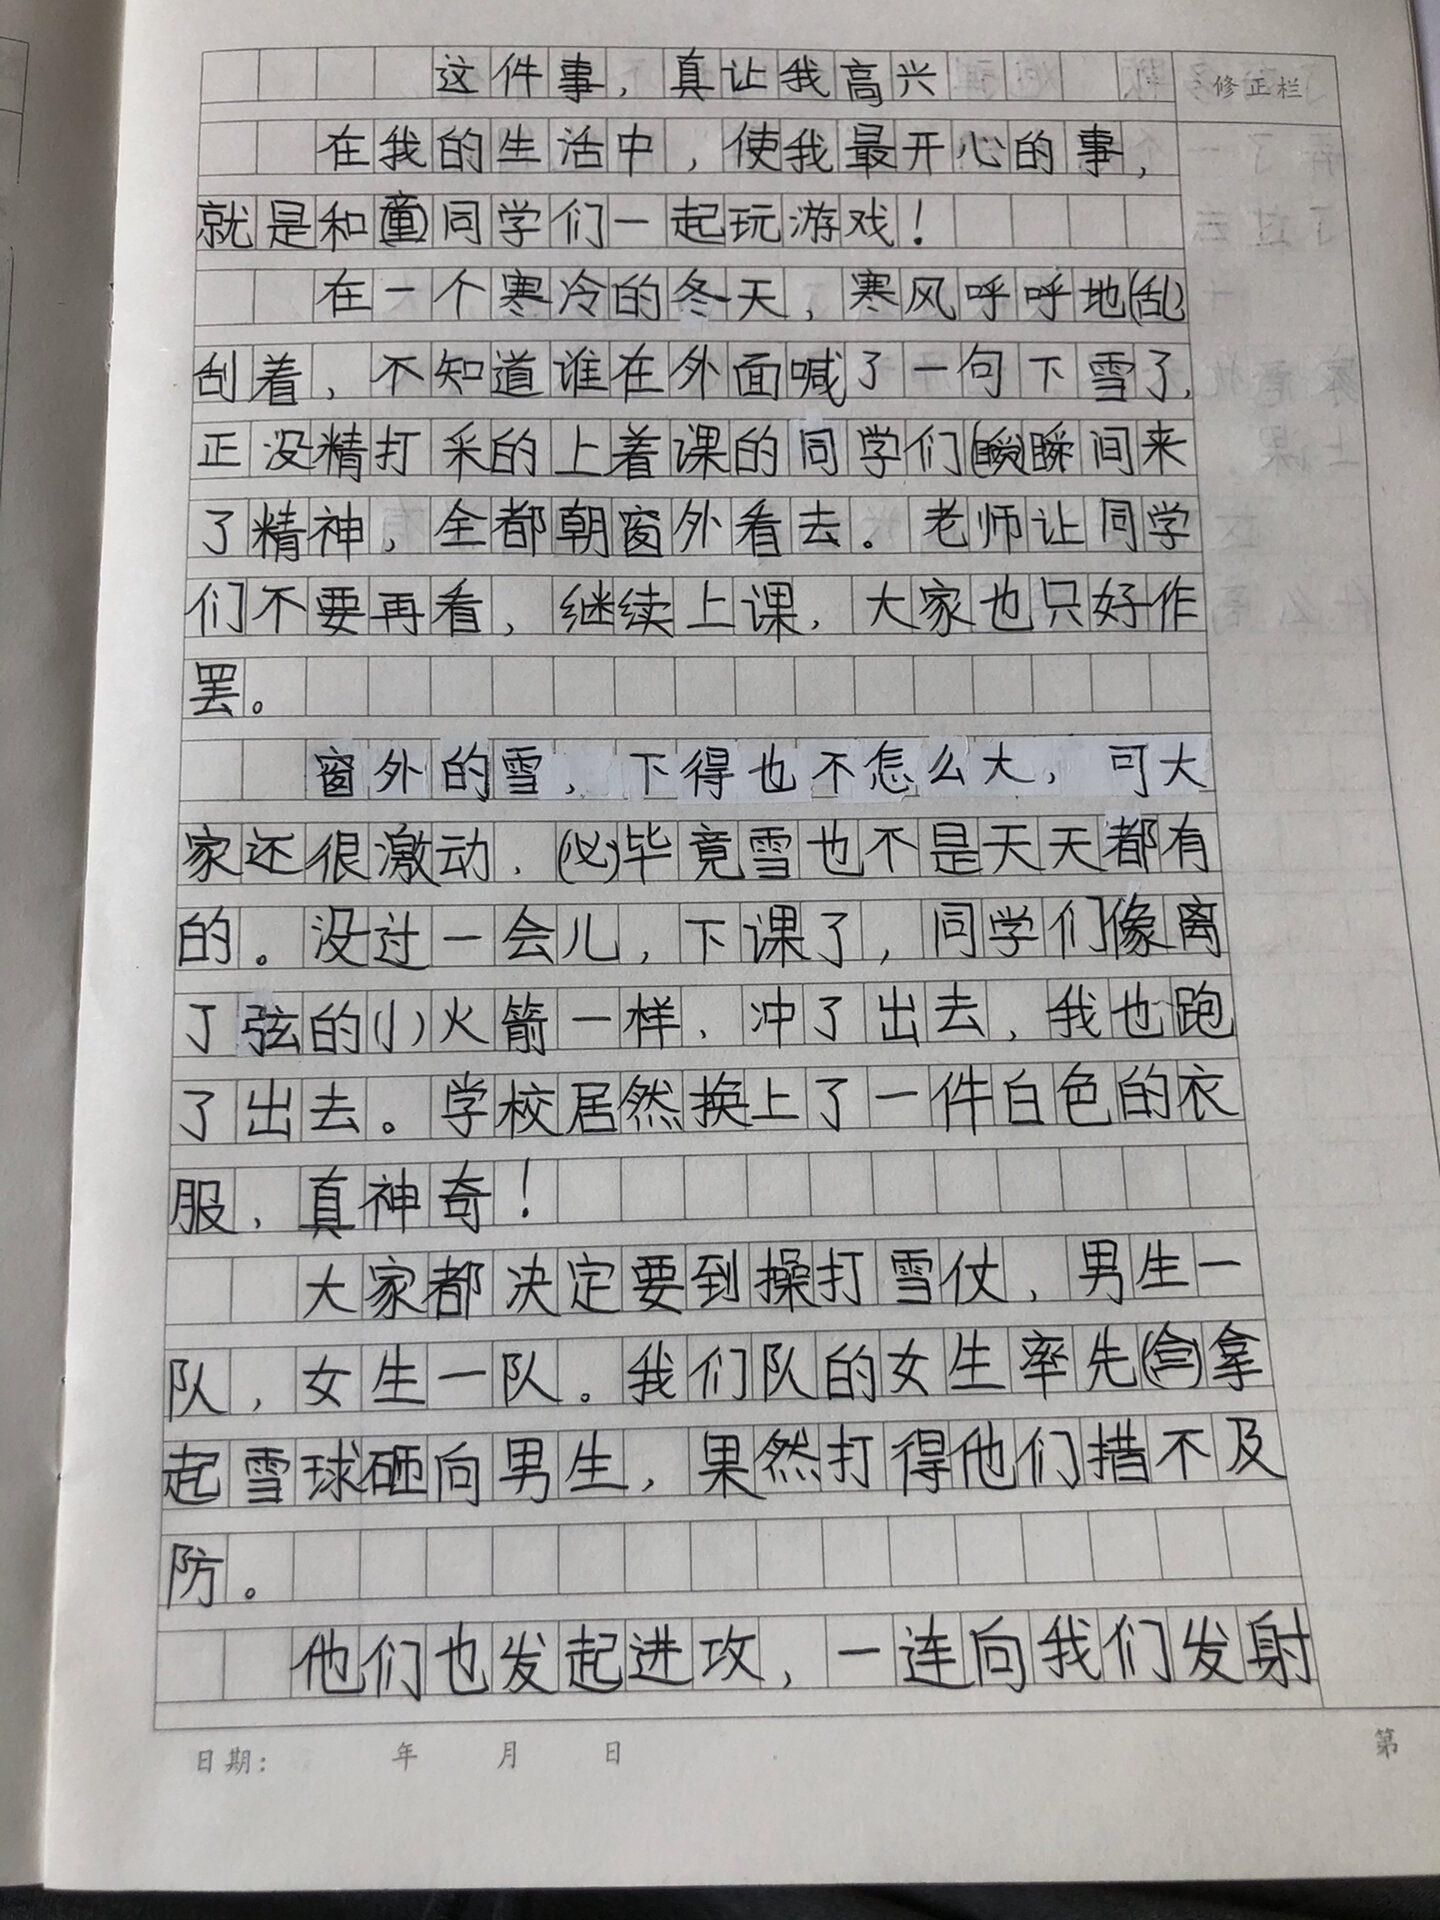 这件事，真让我高兴
修正栏
在我的生活中，使我最开心的事，
就是和(童)同学们一起玩游戏！
在一个寒冷的冬天，寒风呼呼地(乱)
刮着，不知道谁在外面喊了一句下雪了，
正没精打采的上着课的同学们(瞬)瞬间来
了精神，全都朝窗外看去。老师让同学
们不要再看，继续上课，大家也只好作
罢。
窗外的雪，下得也不怎么大，可大
家还很激动，(必)毕竟雪也不是天天都有
的。没过一会儿，下课了，同学们像离
了弦的(小)火箭一样，冲了出去，我也跑
了出去。学校居然换上了一件白色的衣
服，真神奇！
大家都决定要到操打雪仗，男生一
队，女生一队。我们队的女生率先(合)拿
起雪球砸向男生，果然打得他们措不及
防。
他们也发起进攻，一连向我们发射
日期： 年 月 日
第